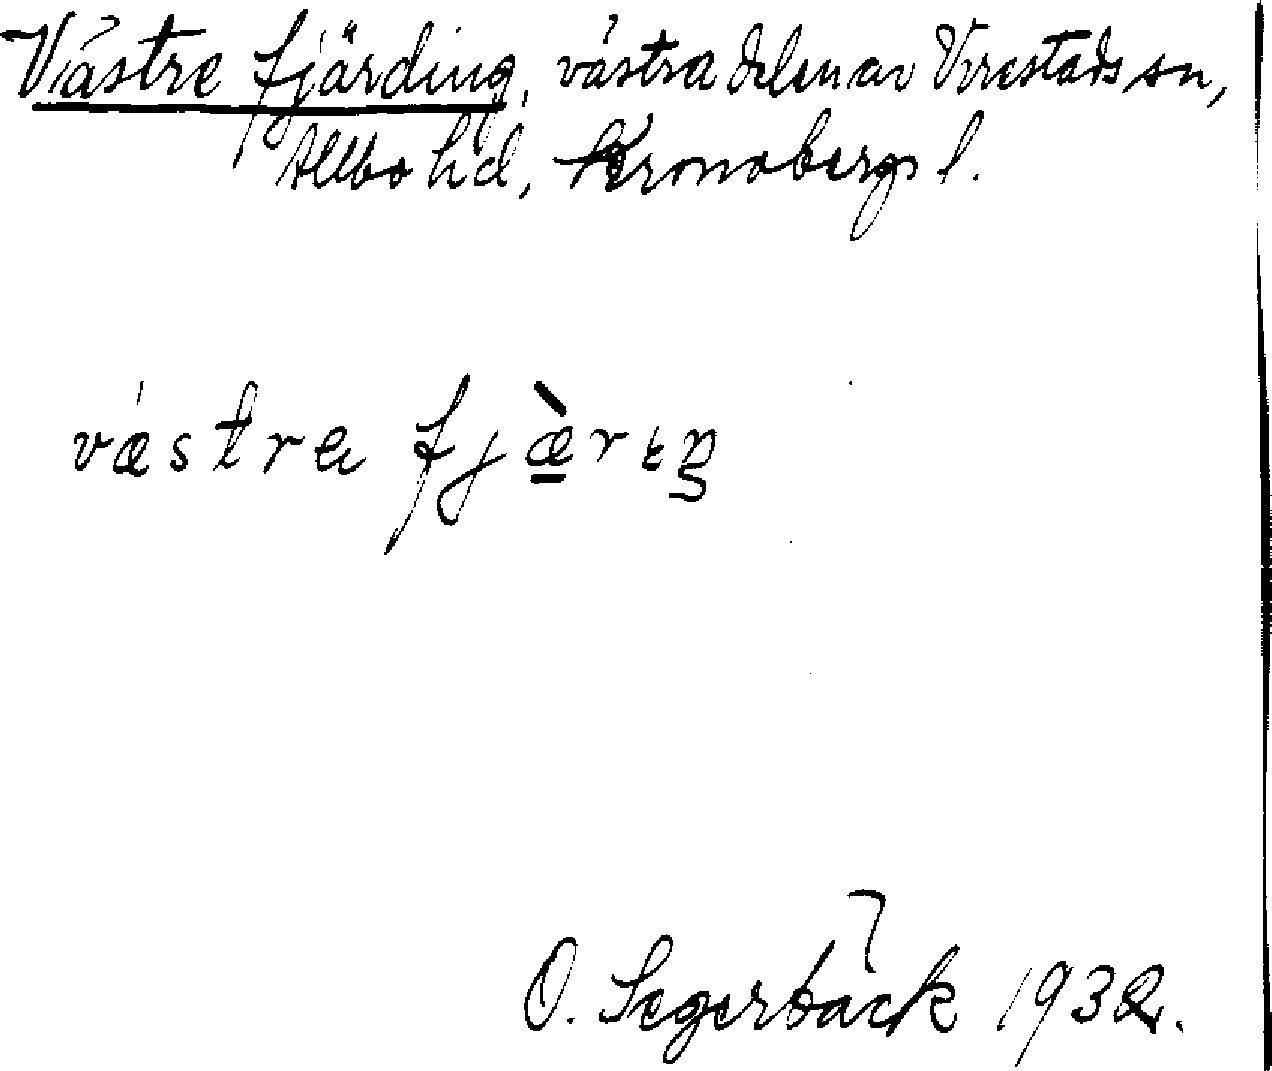 Västre fjärding, västra delen av Virestads sn,
Allbo hd, Kronobergs l.
væstra fjæ̀rıŋ
O. Segerbäck 1932.